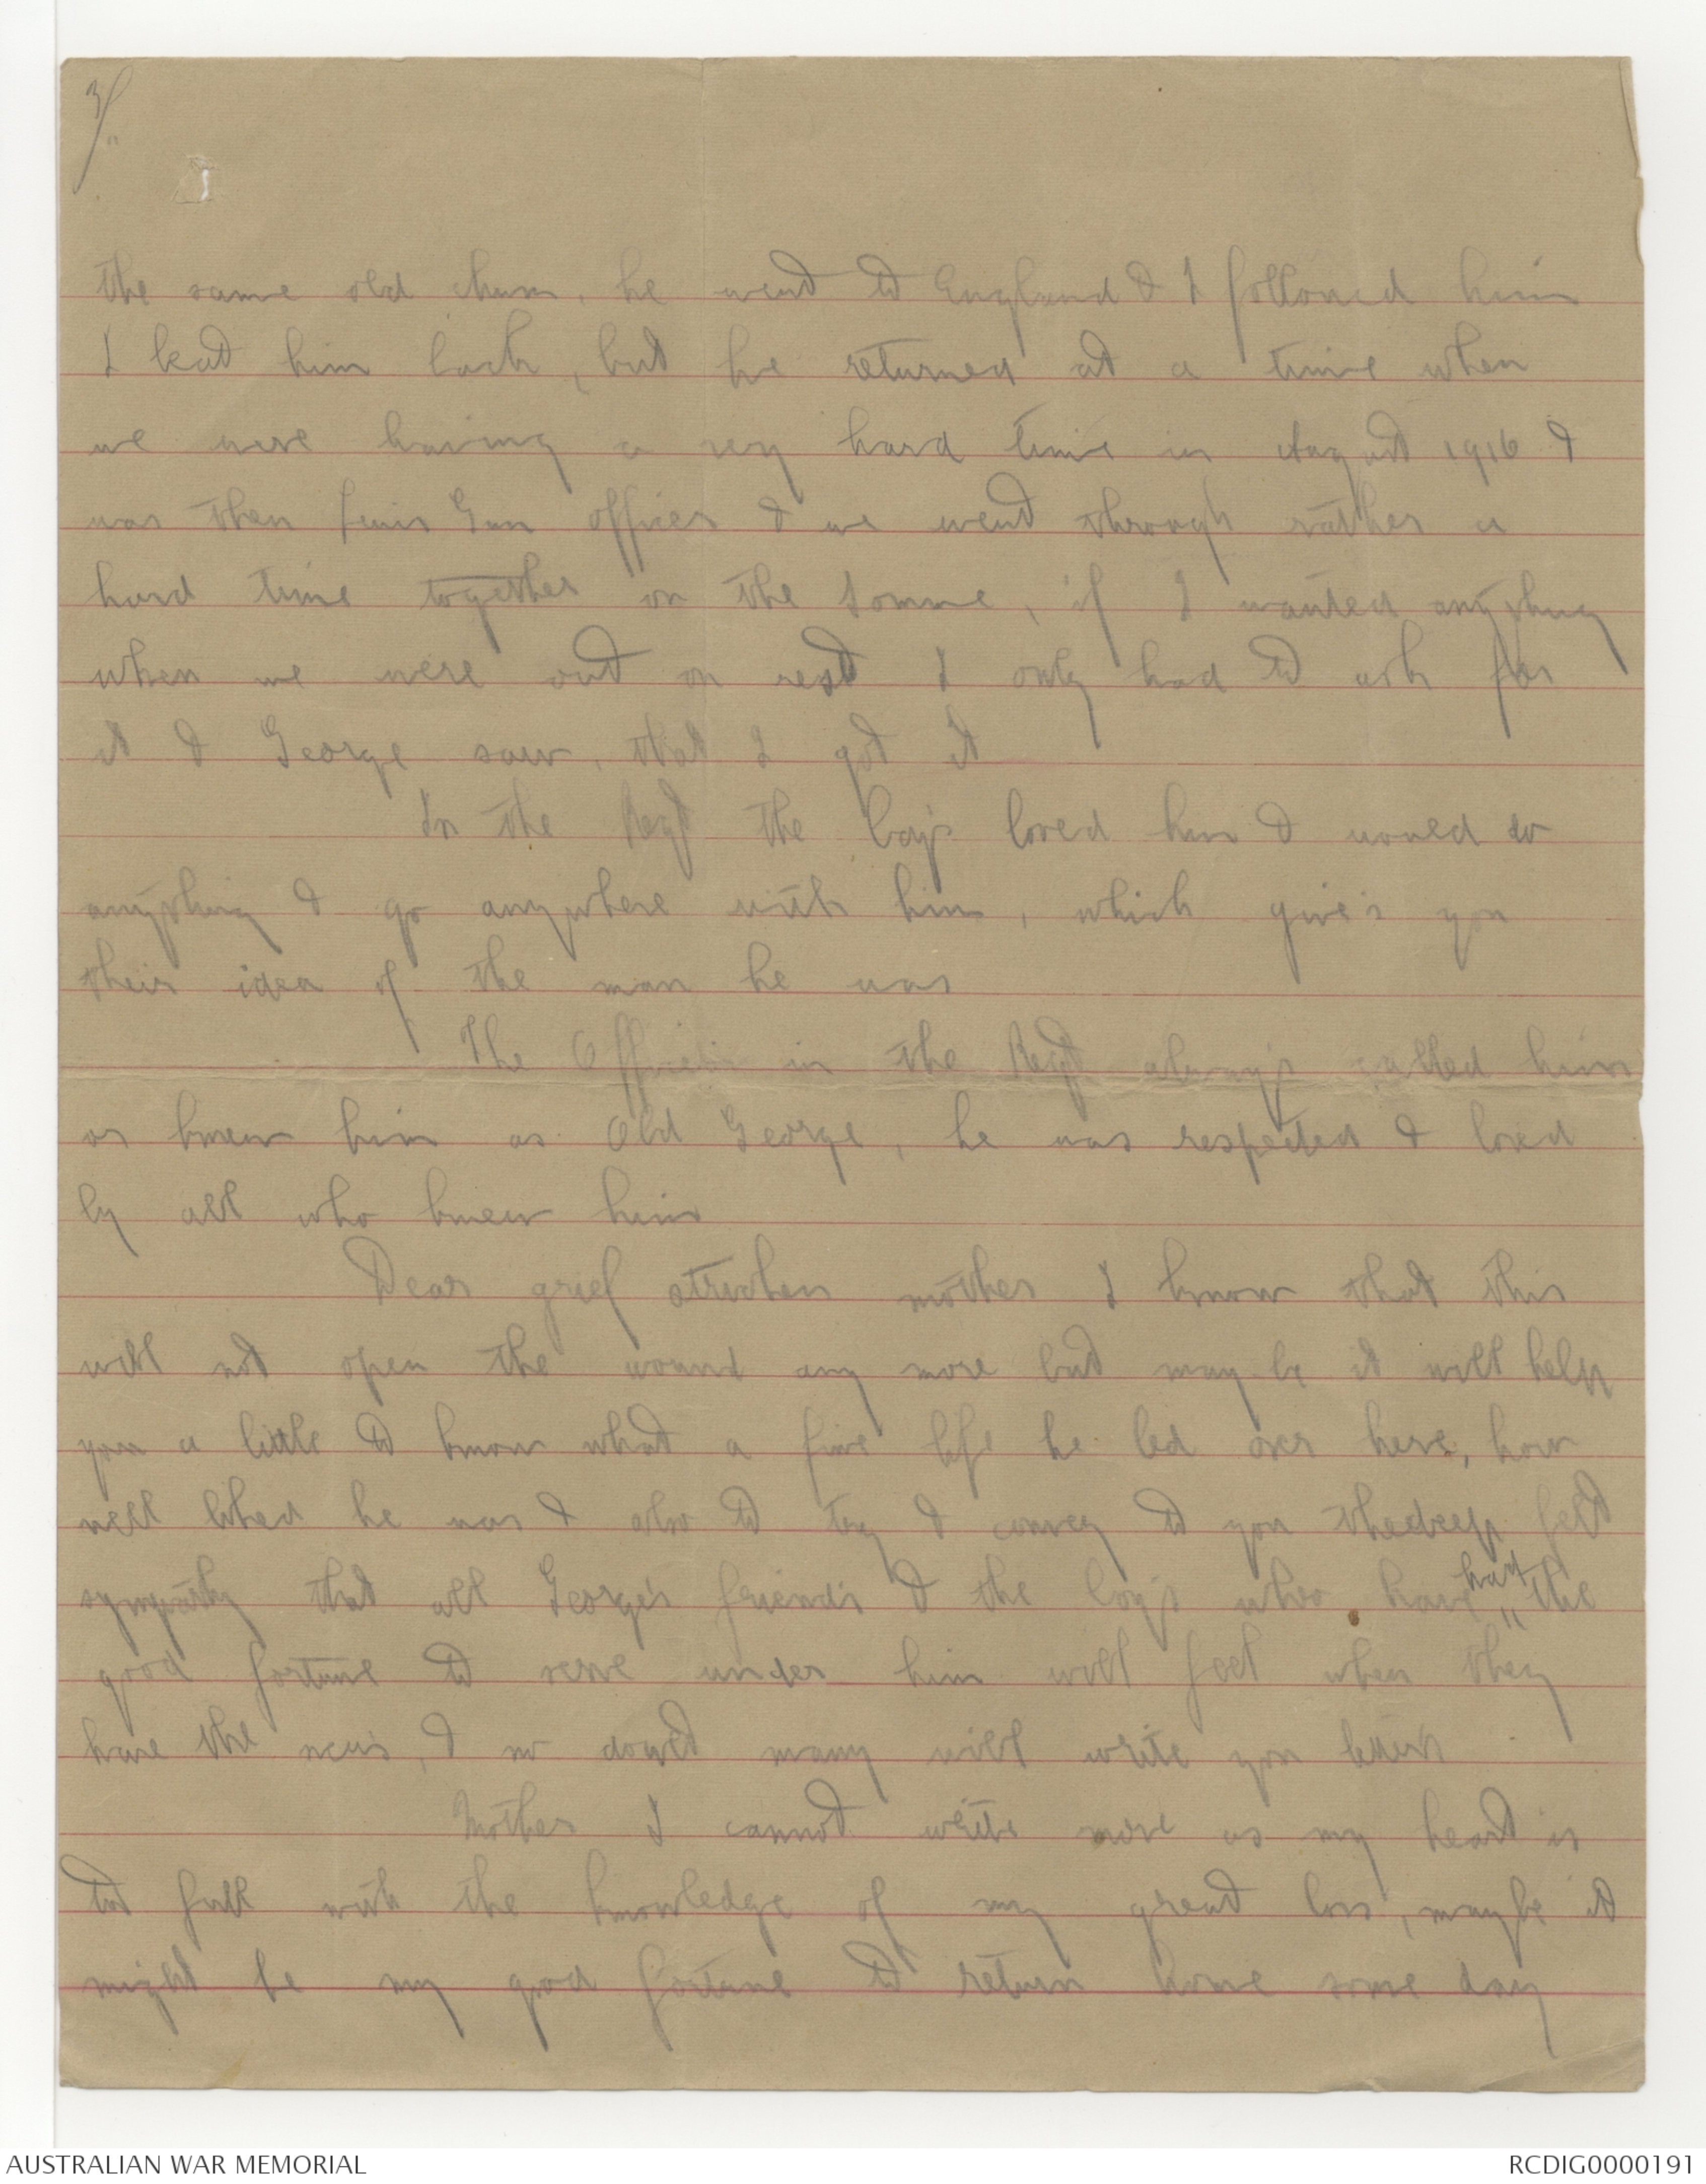 3/.
the same old chum, he went to England & I followed him
I beat him back, but he returned at a time when
we were having a very hard time in August 1916 I
was then Lewis Gun officer & we went through rather a
hard time together on the Somme, if I wanted anything
when we were out on rest I only had to ask for
it & George saw, that I got it
In the Regt the boys loved him & would do
anything & go anywhere with him, which give's you
their idea of the man he was
The Officers in the Regt always called him
or knew him as Old George, he was respected & loved
by all who knew him
Dear grief stricken mother I know that this
will not open the wound any more but may be it will help
you a little to know what a fine life he led over here, how
well liked he was & also to try & convey to you the deep felt
sympathy that all George's friends & the boys who have had the
good fortune to serve under him will feel when they
have the news, & no doubt many will write you letters
Mother I cannot write more as my heart is
too full with the knowledge of my great loss, maybe it
might be my good fortune to return home some day
AUSTRALIAN WAR MEMORIAL
RCDIG0000191